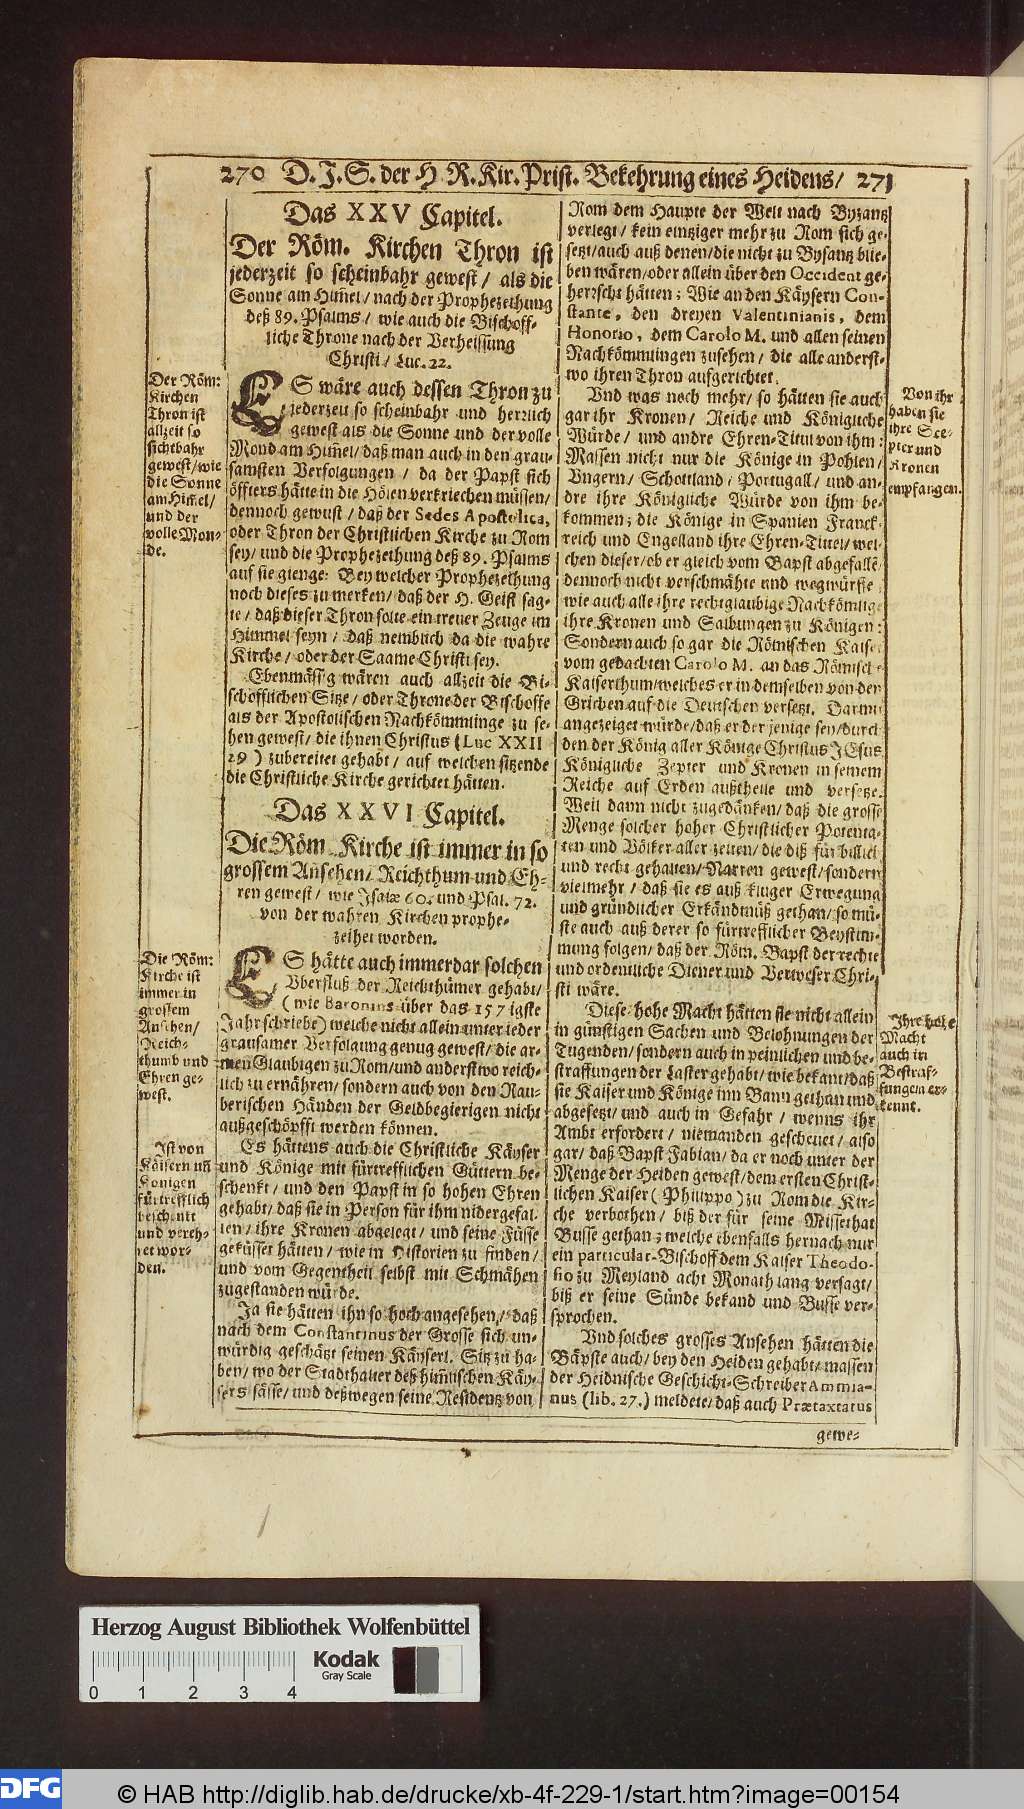 270 D. J. S. der H R. Kir. Prist. Bekehrung eines Heidens/ 271
Das XXV Capitel.
Der Röm. Kirchen Thron ist
jederzeit so scheinbahr gewest / als die
Sonne am Him̃el / nach der Prophezeihung
deß 89. Psalms / wie auch die Bischoff-
liche Throne nach der Verheissung
Christi / Luc. 22.
Der Röm:
Kirchen
Thron ist
allzeit so
sichtbahr
gewest/wie
die Sonne
am Him̃el/
und der
volle Mon-
de.
ES wäre auch dessen Thron zu
jederzeit so scheinbahr und herrlich
gewest als die Sonne und der volle
Mond am Him̃el/ daß man auch in den grau-
samsten Verfolgungen / da der Papst sich
öffters hätte in die Hölen verkriechen müssen/
dennoch gewust / daß der Sedes Apostolica,
oder Thron der Christlichen Kirche zu Rom
sey/ und die Prophezeihung deß 89. Psalms
auf sie gienge: Bey welcher Prophezeihung
noch dieses zu merken/ daß der H. Geist sag-
te / daß dieser Thron solte ein treuer Zeuge im
Himmel seyn / daß nemblich da die wahre
Kirche / oder der Saame Christi sey.
Ebenmässig wären auch allzeit die Bi-
schöfflichen Sitze / oder Throne der Bischoffe
als der Apostolischen Nachkömmlinge zu se-
hen gewest/ die ihnen Christus (Luc XXII
29 ) zubereitet gehabt / auf welchen sitzende
die Christliche Kirche gerichtet hätten.
Das XXVI Capitel.
Die Röm Kirche ist immer in so
grossem Ansehen/ Reichthum und Eh-
ren gewest / wie Isaiæ 60. und Psal. 72.
von der wahren Kirchen prophe-
zeihet worden.
Die Röm:
Kirche ist
immer in
grossem
Ansehen/
Reich-
thumb und
Ehren ge-
west.
ES hätte auch immerdar solchen
Vberfluß der Reichthümer gehabt/
( wie Baronius über das 157igste
Jahr schriebe) welche nicht allein unter jeder
grausamer Verfolgung genug gewest/ die ar-
men Glaubigen zu Rom/ und anderstwo reich-
lich zu ernähren/ sondern auch von den Rau-
berischen Händen der Geldbegierigen nicht
außgeschöpfft werden können.
Ist von
Käisern uñ
Königen
fürtrefflich
beschenkt
und vereh-
ret wor-
den.
Es hättens auch die Christliche Käyser
und Könige mit fürtrefflichen Güttern be-
schenkt / und den Papst in so hohen Ehren
gehabt/ daß sie in Person für ihm nidergefal-
len / ihre Kronen abgelegt/ und seine Füsse
geküsset hätten / wie in Historien zu finden /
und vom Gegentheil selbst mit Schmähen
zugestanden würde.
Ja sie hätten ihn so hoch angesehen / daß
nach dem Constantinus der Grosse sich un-
würdig geschätzt seinen Käyserl. Sitz zu ha-
ben/ wo der Stadthalter deß him̃lischen Käy-
sers sässe / und deßwegen seine Residentz von
Rom dem Haupte der Welt nach Byzantz
verlegt / kein eintziger mehr zu Rom sich ge-
setzt/ auch auß denen/ die nicht zu Bysantz blie-
ben wären/ oder allein über den Occident ge-
herrscht hätten; Wie an den Käysern Con-
stante, den dreyen Valentinianis, dem
Honorio, dem Carolo M. und allen seinen
Nachkömmlingen zusehen / die alle anderst-
wo ihren Thron aufgerichtet.
Von ihr
haben sie
ihre Sce-
pter und
Kronen
empfangen.
Vnd was noch mehr / so hätten sie auch
gar ihr Kronen / Reiche und Königliche
Würde / und andre Ehren-Titul von ihm:
Massen nicht nur die Könige in Pohlen /
Vngern / Schottland / Portugall / und an-
dre ihre Königliche Würde von ihm be-
kommen; die Könige in Spanien Franck-
reich und Engelland ihre Ehren-Titul/ wel-
chen dieser/ ob er gleich vom Bapst abgefallē/
dennoch nicht verschmähte und wegwürffe
wie auch alle ihre rechtglaubige Nachkömlige
ihre Kronen und Salbungen zu Königen:
Sondern auch so gar die Römischen Kaiser
vom gedachten Carolo M. an das Römische
Kaiserthum/ welches er in demselben von den
Grichen auf die Deutschen versetzt. Darmit
angezeiget würde/ daß er der jenige sey/ durch
den der König aller Könige Christus JEsus
Königliche Zepter und Kronen in seinem
Reiche auf Erden außtheile und versetze.
Weil dann nicht zugedänken/ daß die grosse
Menge solcher hoher Christlicher Potenta-
ten und Völker aller zeiten/ die diß für billich
und recht gehalten/ Narren gewest/ sondern
vielmehr / daß sie es auß kluger Erwegung
und gründlicher Erkändtnüß gethan/ so mü-
ste auch auß derer so fürtrefflicher Beystim-
mung folgen/ daß der Röm. Bapst der rechte
und ordentliche Diener und Verweser Chri-
sti wäre.
Ihre hohe
Macht
auch in
Bestraf-
fungen er-
kennt.
Diese hohe Macht hätten sie nicht allein
in günstigen Sachen und Belohnungen der
Tugenden/ sondern auch in peinlichen und be-
straffungen der Laster gehabt/ wie bekant/ daß
sie Kaiser und Könige inn Bann gethan und
abgesetzt/ und auch in Gefahr / wenns ihr
Ambt erfordert / niemanden gescheuet / also
gar/ daß Bapst Fabian/ da er noch unter der
Menge der Heiden gewest/ dem ersten Christ-
lichen Kaiser ( Philippo ) zu Rom die Kir-
che verbothen / biß der für seine Missethat
Busse gethan; welche ebenfalls hernach nur
ein particular-Bischoff dem Kaiser Theodo-
sio zu Meyland acht Monath lang versagt/
biß er seine Sünde bekand und Busse ver-
sprochen.
Vnd solches grosses Ansehen hätten die
Bäpste auch/ bey den Heiden gehabt/ massen
der Heidnische Geschicht-Schreiber Ammia-
nus (lib. 27.) meldete/ daß auch Prætaxtatus
gewe-
Herzog August Bibliothek Wolfenbüttel
Kodak
Gray Scale
0 1 2 3 4
DFG © HAB http://diglib.hab.de/drucke/xb-4f-229-1/start.htm?image=00154